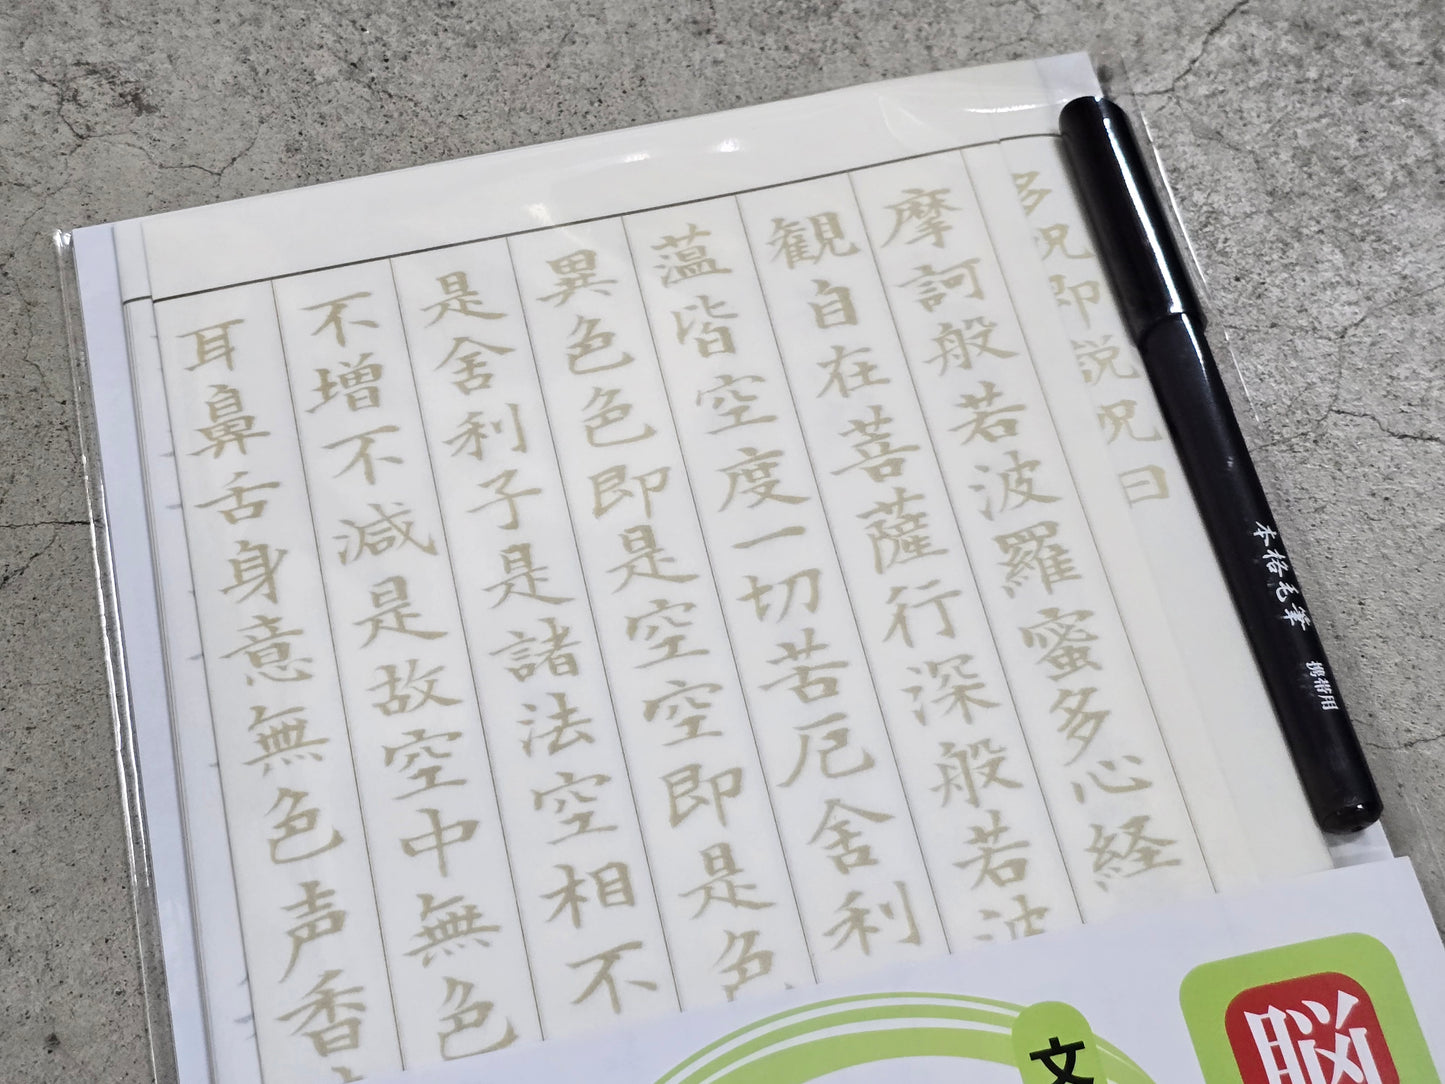 多呪即説呪曰
摩訶般若波羅蜜多心経
観自在菩薩行深般若波
薀皆空度一切苦厄舎利
異色色即是空空即是色
是舎利子是諸法空相不
不増不減是故空中無色
耳鼻舌身意無色声香
本格毛筆 携帯用
脳
文